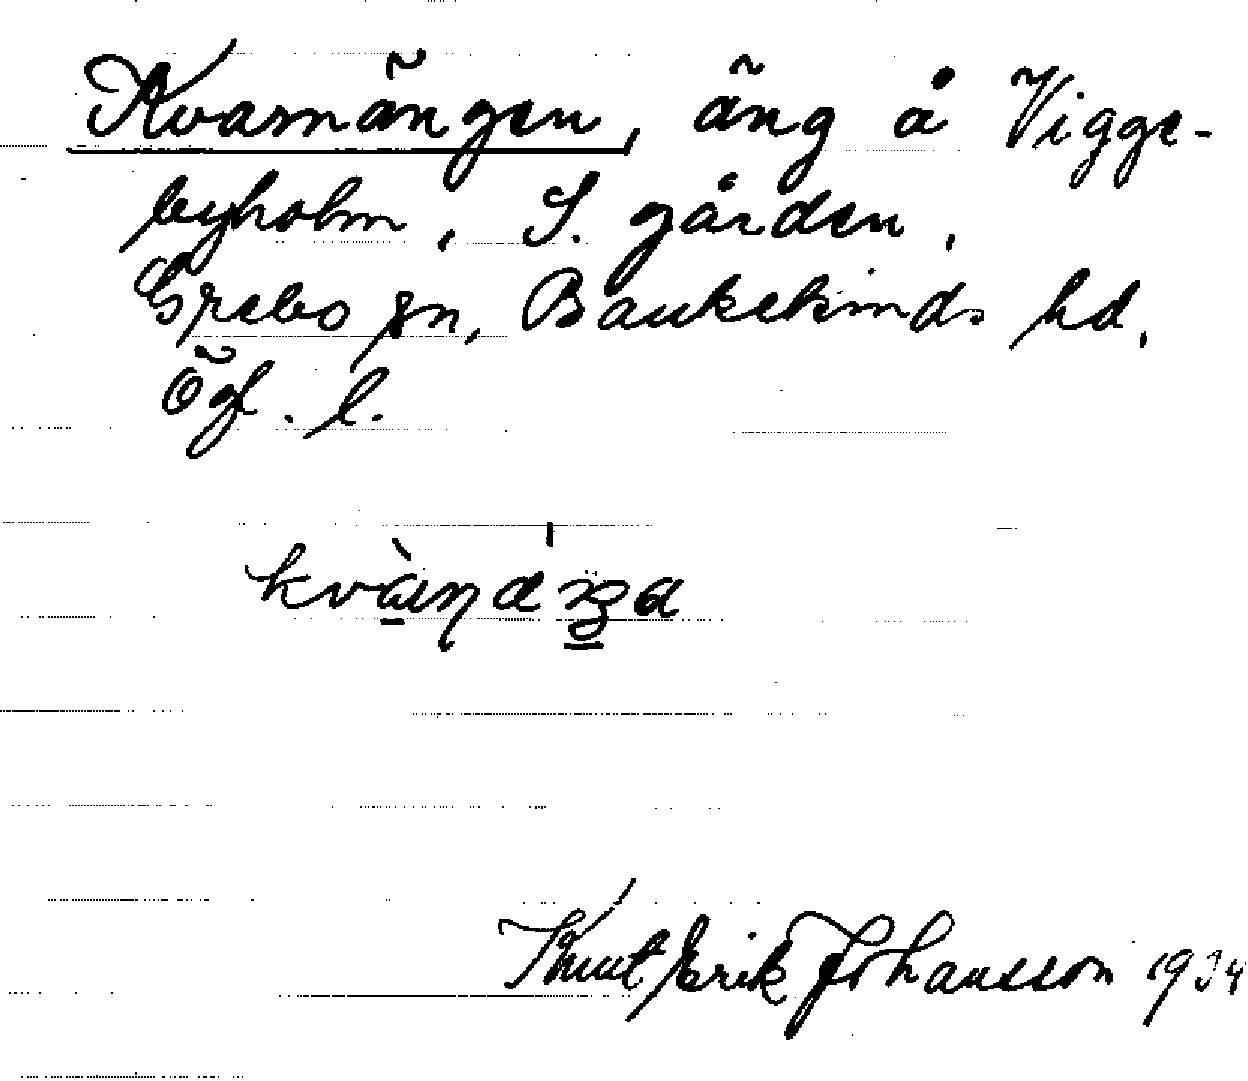 Kvarnängen, äng å Vigge-
byholm, S. gården,
Grebo sn, Bankekinds hd,
Ögl. l.
Knut Erik Johansson 1934